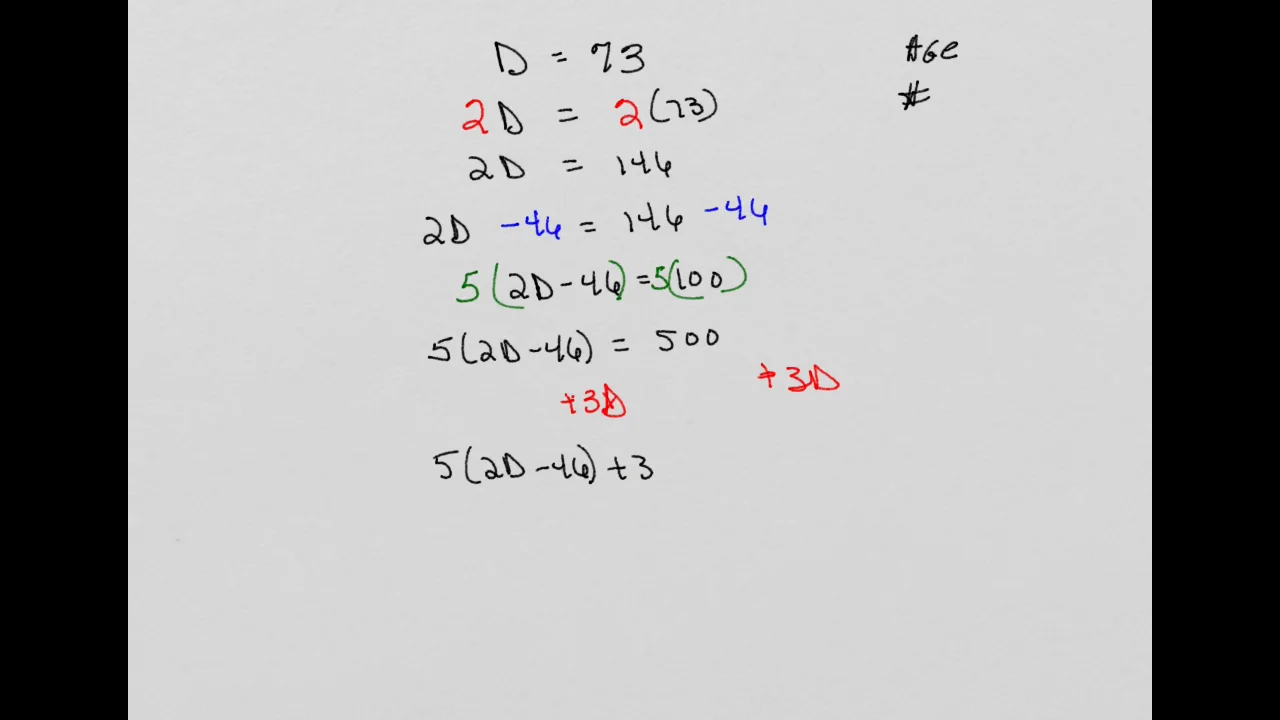 D = 73
2D = 2(73)
2D = 146
2D -46 = 146 -46
5(2D-46) = 5(100)
5(2D-46) = 500
+3D +3D
5(2D-46) +3
AGE
#